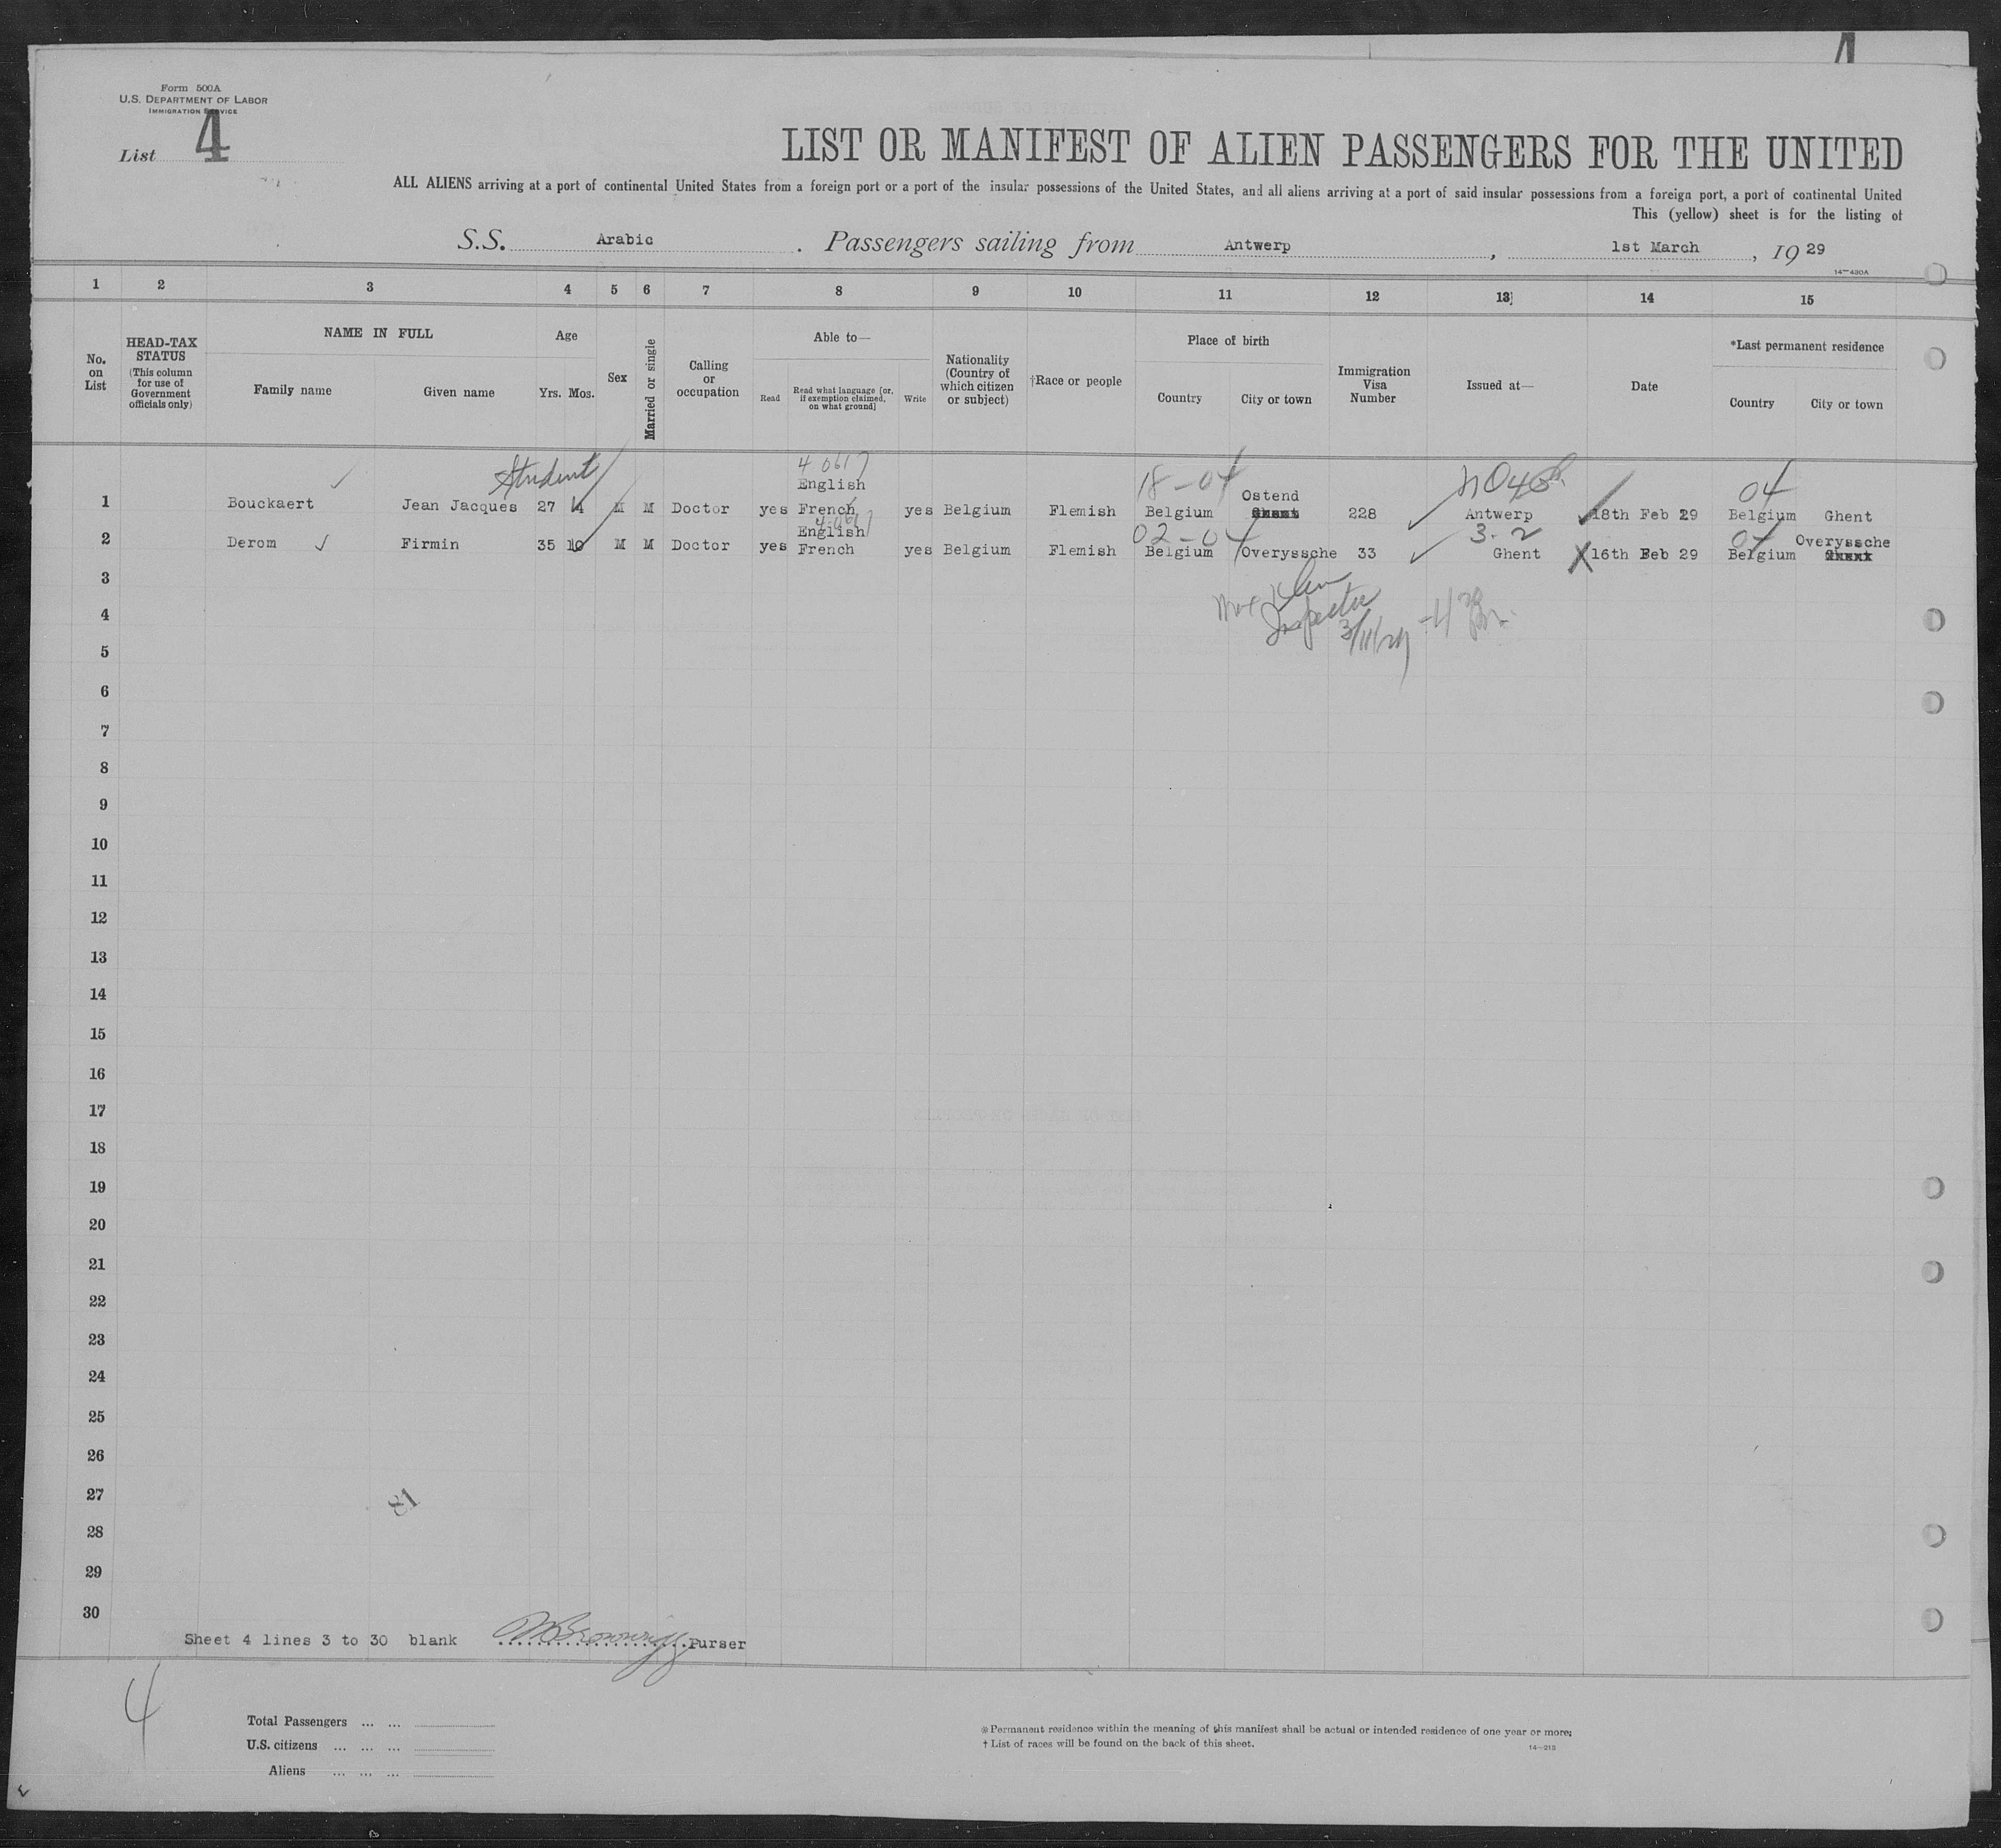 4
Form 500A
U.S. DEPARTMENT OF LABOR
IMMIGRATION SERVICE
List 4
LIST OR MANIFEST OF ALIEN PASSENGERS FOR THE UNITED
ALL ALIENS arriving at a port of continental United States from a foreign port or a port of the insular possessions of the United States, and all aliens arriving at a port of said insular possessions from a foreign port, a port of continental United
This (yellow) sheet is for the listing of
S.S. Arabic . Passengers sailing from Antwerp , 1st March , 19 29
14—430A
1 2 3 4 5 6 7 8 9 10 11 12 13 14 15
No. on List
HEAD-TAX STATUS (This column for use of Government officials only)
NAME IN FULL
Family name Given name
Age
Yrs. Mos.
Sex
Married or single
Calling or occupation
Able to—
Read Read what language [or, if exemption claimed, on what ground] Write
Nationality (Country of which citizen or subject)
†Race or people
Place of birth
Country City or town
Immigration Visa Number
Issued at—
Date
*Last permanent residence
Country City or town
Student 4 0617 18-04 04
English Ostend
1 Bouckaert Jean Jacques 27 4 M M Doctor yes French yes Belgium Flemish Belgium 228 Antwerp 18th Feb 29 Belgium Ghent
English 02-04 3-2 04 Overyssche
2 Derom Firmin 35 10 M M Doctor yes French yes Belgium Flemish Belgium Overyssche 33 Ghent 16th Feb 29 Belgium
Inspector
3/11/29
3
4
5
6
7
8
9
10
11
12
13
14
15
16
17
18
19
20
21
22
23
24
25
26
27
81
28
29
30
Sheet 4 lines 3 to 30 blank Browning Purser
4
Total Passengers ... ...
U.S. citizens ... ... ...
Aliens ... ... ...
*Permanent residence within the meaning of this manifest shall be actual or intended residence of one year or more.
† List of races will be found on the back of this sheet.
14—213